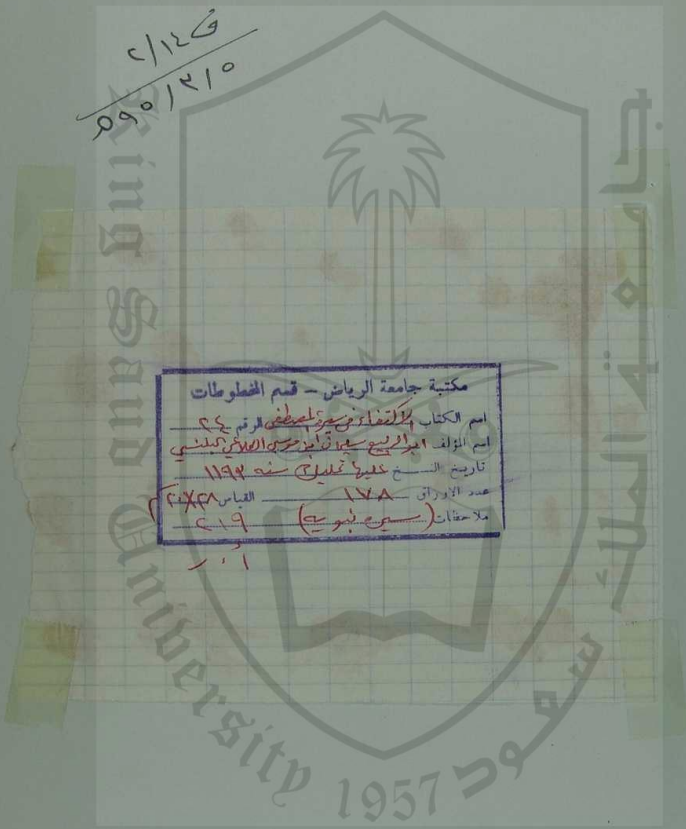 ف ٢/١٤
٥٩٥/٣/٥
مكتبة جامعة الرياض – قسم المخطوطات
اسم الكتاب الاكتفاء في سيرة المصطفى الرقم ٢٤
اسم المؤلف ابو الربيع سليمان ابن موسى الكلاعي البلنسي
تاريخ النسخ عليها تمليك سنه ١١٩٣
عدد الأوراق ١٧٨ القياس
ملاحظات (سيره نبويه) ٢١٩
King Saud University 1957
جامعة الملك سعود